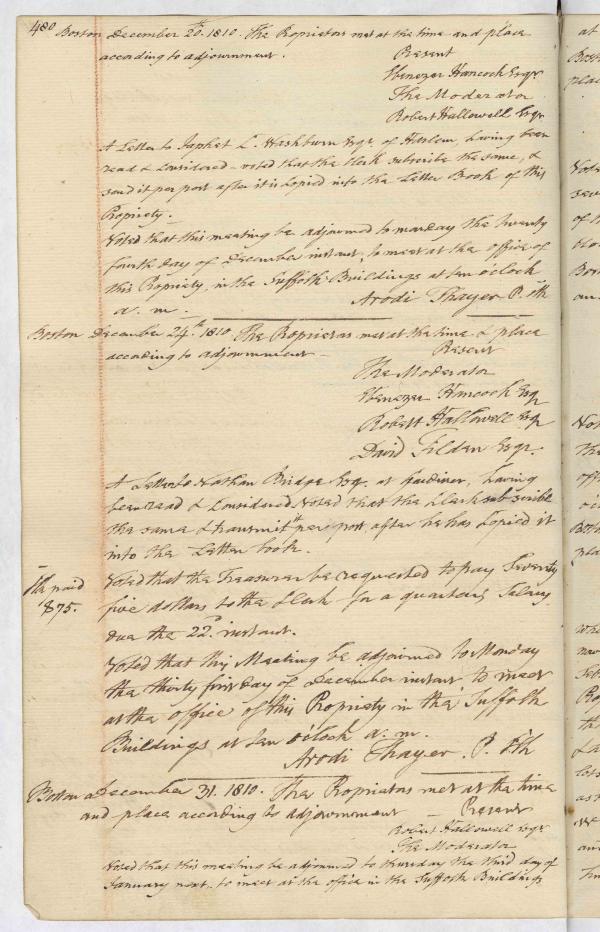 480
Boston December 20th. 1810. The Proprietors met at the time and place
according to adjournment.
Present
Ebenezer Hancock Esqr.
The Moderator
Robert Hallowell Esqr
A Letter to Japhet C. Washburn Esqr. of Harlem, having been
read & considered - voted that the Clerk subscribe the same, &
send it per post after it is copied into the Letter Book of this
Propriety.
Voted that this meeting be adjourned to monday the twenty
fourth day of December instant, to meet at the office of
this Propriety, in the Suffolk-Buildings at ten o'clock
a. m.
Arodi Thayer P. Clk
Boston December 24th. 1810. The Proprietors met at the time & place
according to adjournment -
Present
The Moderator
Ebenezer Hancock Esqr
Robert Hallowell Esqr
David Tilden Esqr.
A Letter to Nathan Bridge Esqr. at Gardiner, having
been read & considered, Voted that the Clerk subscribe
the same & transmit it per post after he has copied it
into the Letter book.
paid
$75.
Voted that the Treasurer be requested to pay Seventy
five dollars to the Clerk for a quarters Salary
due the 22d. instant.
Voted that this Meeting be adjourned to Monday
the thirty first Day of December instant to meet
at the office of this Propriety in the Suffolk
Buildings at ten o'clock a. m.
Arodi Thayer. P. Clk
Boston December 31. 1810. The Proprietors met at the time
and place according to adjournment - Present
Robert Hallowell Esqr
The Moderator
Voted that this meeting be adjourned to thursday the third day of
January next. to meet at the office in the Suffolk Buildings